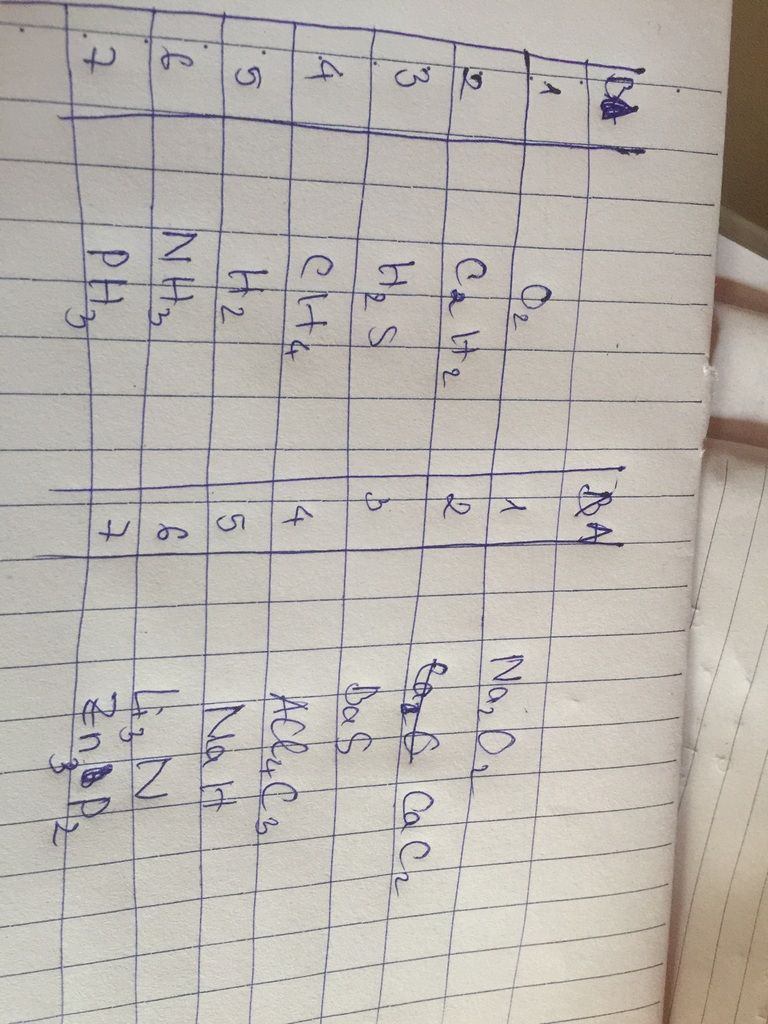 BA
1. O₂ 1 Na₂O₂
2. C₂H₂ 2 CaC₂
3. H₂S 3 BaS
4. CH₄ 4 Al₄C₃
5. H₂ 5 NaH
6. NH₃ 6 Li₃N
7. PH₃ 7 Zn₃P₂